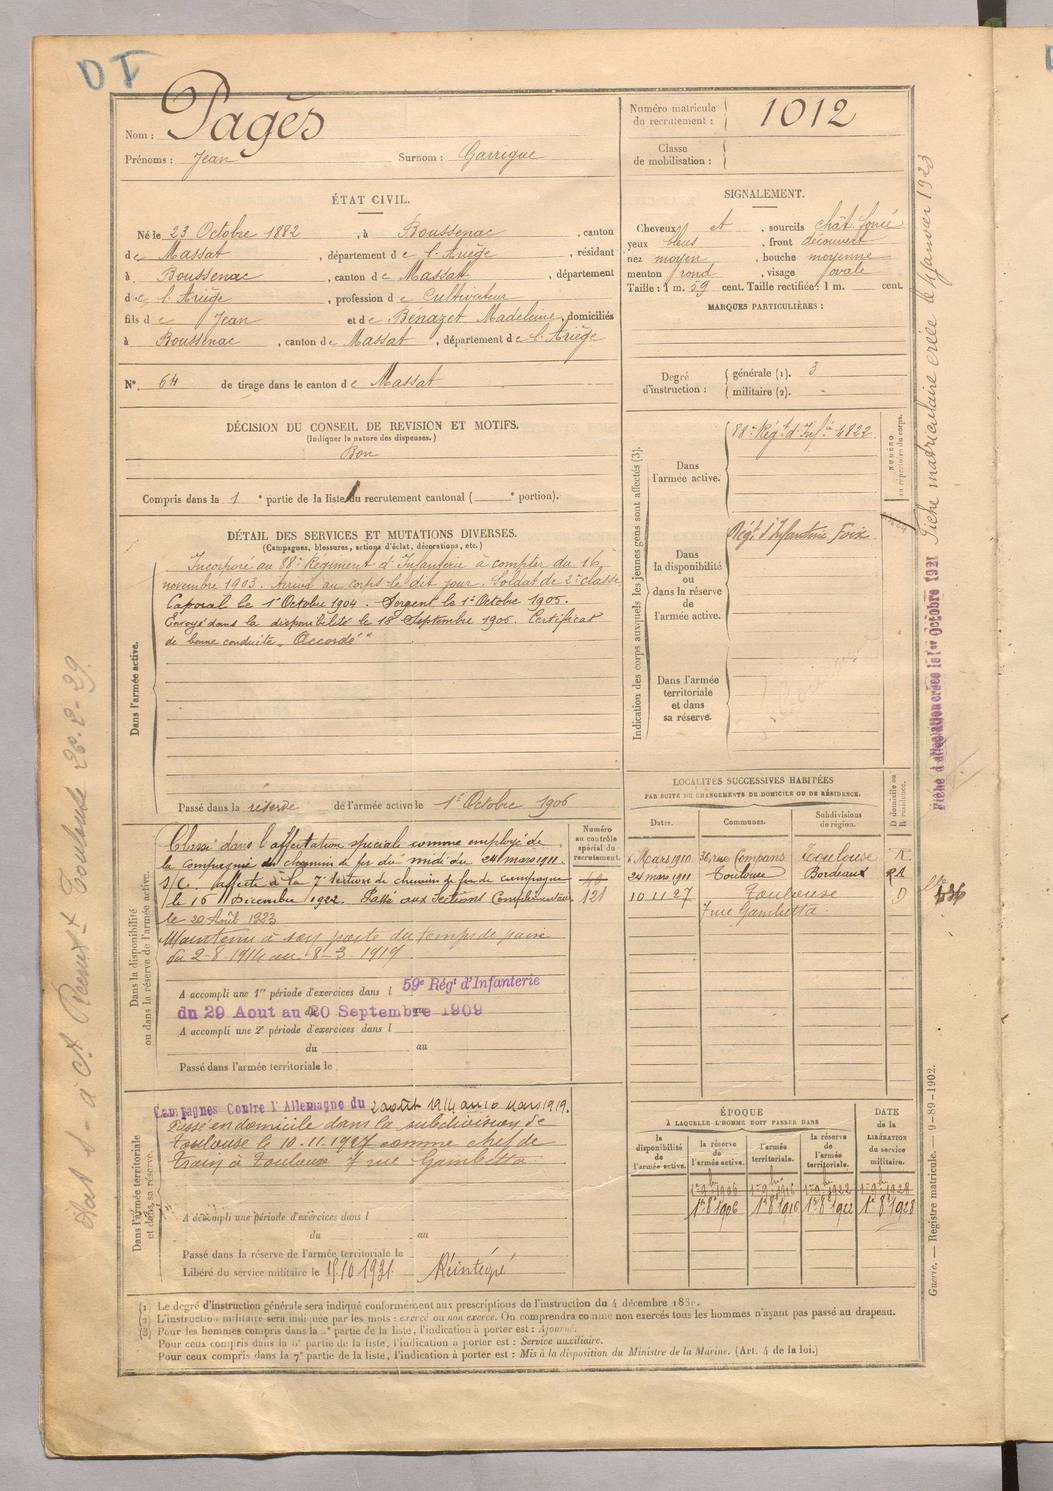 OI
Nom : Pagès
Prénoms : Jean Surnom : Garrigue
Numéro matricule du recrutement : 1012
Classe de mobilisation :
ÉTAT CIVIL.
Né le 23 Octobre 1882, à Boussenac, canton
de Massat, département de l'Ariège, résidant
à Boussenac, canton de Massat, département
de l'Ariège, profession de Cultivateur
fils de Jean et de Benazet Madeleine, domiciliés
à Boussenac, canton de Massat, département de l'Ariège
N° 64 de tirage dans le canton de Massat
SIGNALEMENT.
Cheveux et, sourcils chât. foncé
yeux bleus, front découvert
nez moyen, bouche moyenne
menton rond, visage ovale
Taille : 1 m. 59 cent. Taille rectifiée : 1 m. cent.
MARQUES PARTICULIÈRES :
Degré d'instruction : générale (1). 3
militaire (2). -
DÉCISION DU CONSEIL DE REVISION ET MOTIFS.
(Indiquer la nature des dispenses.)
Bon
Compris dans la 1e partie de la liste du recrutement cantonal ( e portion).
DÉTAIL DES SERVICES ET MUTATIONS DIVERSES.
(Campagnes, blessures, actions d'éclat, décorations, etc.)
Dans l'armée active.
Incorporé au 88e Régiment d'Infanterie à compter du 16
novembre 1903. Arrivé au corps le dit jour. Soldat de 2e classe
Caporal le 1er Octobre 1904. Sergent le 1er Octobre 1905.
Envoyé dans la disponibilité le 18 Septembre 1906. Certificat
de bonne conduite "Accordé"
Passé dans la réserve de l'armée active le 1er Octobre 1906
Indication des corps auxquels les jeunes gens sont affectés (3).
NUMÉRO au répertoire du corps.
Dans l'armée active.
88e Régt d'Infie à 4822
Dans la disponibilité ou dans la réserve de l'armée active.
Régt d'Infanterie Foix
Dans l'armée territoriale et dans sa réserve.
Dans la disponibilité ou dans la réserve de l'armée active.
Classé dans l'affectation spéciale comme employé de
la compagnie du chemin de fer du midi du 24 mars 1911.
S/C. affecté à la 7e section de chemin de fer de campagne
le 16 Décembre 1922. Passé aux Sections Complémentaires
le 20 Août 1923
Maintenu à son poste du temps de paix
du 2-8-1914 au 8-3-1919
Numéro au contrôle spécial du recrutement.
121
A accompli une 1re période d'exercices dans l 59e Régt d'Infanterie
du 29 Aout au 20 Septembre 1909
A accompli une 2e période d'exercices dans l
du au
Passé dans l'armée territoriale le
LOCALITÉS SUCCESSIVES HABITÉES
PAR SUITE DE CHANGEMENTS DE DOMICILE OU DE RÉSIDENCE.
Dates. Communes. Subdivisions de région. D domicile ou R résidence.
6 Mars 1910 36, rue Compans Toulouse R
24 mars 1911 Toulouse Bordeaux
10 11 27 Toulouse D
7 rue Gambetta
Dans l'armée territoriale et dans sa réserve.
Campagnes Contre l'Allemagne du 2 août 1914 au 10 mars 1919.
Passe en domicile dans la subdivision de
Toulouse le 10.11.1927 comme chef de
train à Toulouse 7 rue Gambetta
A accompli une période d'exercices dans l
du au
Passé dans la réserve de l'armée territoriale le
Libéré du service militaire le 15/10 1931 Réintégré
ÉPOQUE
À LAQUELLE L'HOMME DOIT PASSER DANS
la disponibilité de l'armée active. la réserve de l'armée active. l'armée territoriale. la réserve de l'armée territoriale.
DATE de la LIBÉRATION du service militaire.
1er 8bre 1906 1er 8bre 1916 1er 8bre 1922 1er 8bre 1928
(1) Le degré d'instruction générale sera indiqué conformément aux prescriptions de l'instruction du 4 décembre 1889.
(2) L'instruction militaire sera indiquée par les mots : exercé ou non exercé. On comprendra comme non exercés tous les hommes n'ayant pas passé au drapeau.
(3) Pour les hommes compris dans la 5e partie de la liste, l'indication à porter est : Ajourné.
Pour ceux compris dans la 6e partie de la liste, l'indication à porter est : Service auxiliaire.
Pour ceux compris dans la 7e partie de la liste, l'indication à porter est : Mis à la disposition du Ministre de la Marine. (Art. 4 de la loi.)
Fiche matriculaire créée le janvier 1923
Fiche d'affectation créée le 1er Octobre 1921
Guerre. — Registre matricule. — 9-89-1902.
Toulouse 28-2-29